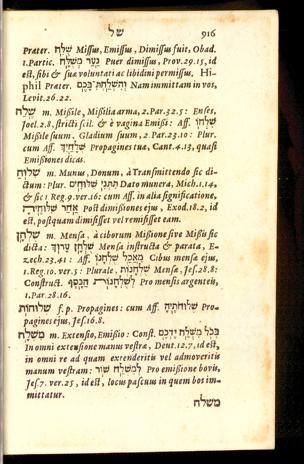 שׁל 916
Præter. שֻׁלַּח Missus, Emissus, Dimissus fuit, Obad.
1. Partic. נַעַר מְשֻׁלָּח Puer dimissus, Prov. 29.15, id
est, sibi & suæ voluntati ac libidini permissus. Hi-
phil Præter. וְהִשְׁלַחְתִּי בָכֶם Nam immittam in vos,
Levit. 26.22.
שֶׁלַח m. Missile, Missilia arma, 2. Par. 32.5: Enses,
Joel. 2.8, stricti scil. & è vagina Emissi: Aff. שִׁלְחוֹ
Missile suum, Gladium suum, 2. Par. 23.10: Plur.
cum Aff. שְׁלָחַיִךְ Propagines tuæ, Cant. 4.13, quasi
Emissiones dicas.
שִׁלּוּחַ m. Munus, Donum, à Transmittendo sic di-
ctum: Plur. תִּתְּנִי שִׁלּוּחִים Dato munera, Mich. 1.14,
& sic 1. Reg. 9. ver. 16: cum Aff. in alia significatione,
אַחַר שִׁלּוּחֶיהָ Post dimissiones ejus, Exod. 18.2, id
est, postquam dimisisset vel remisisset eam.
שֻׁלְחָן m. Mensa, à ciborum Missione sive Missis sic
dicta: שֻׁלְחָן עָרוּךְ Mensa instructa & parata, E-
zech. 23.41: Aff. מַאֲכַל שֻׁלְחָנוֹ Cibus mensæ ejus,
1. Reg. 10. ver. 5: Plurale, שֻׁלְחָנוֹת Mensæ, Jes. 28.8:
Construct. לְשֻׁלְחֲנוֹת הַכֶּסֶף Pro mensis argenteis,
1. Par. 28.16.
שְׁלֻחוֹת f. p. Propagines: cum Aff. שְׁלֻחוֹתֶיהָ Pro-
pagines ejus, Jes. 16.8.
מִשְׁלַח m. Extensio, Emissio: Const. בְּכֹל מִשְׁלַח יֶדְכֶם
In omni extensione manus vestræ, Deut. 12.7, id est,
in omni re ad quam extenderitis vel admoveritis
manum vestram: לְמִשְׁלַח שׁוֹר Pro emissione bovis,
Jes. 7. ver. 25, id est, locus pascuus in quem bos im-
mittatur.
משלח